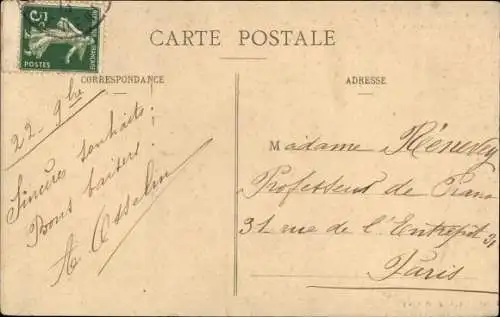 5c
POSTES
CARTE POSTALE
CORRESPONDANCE
ADRESSE
22 - 9bre
Sincères souhaits !
Bons baisers !
A Asselin
Madame Rénevey
Professeur de Piano
31 rue de l'Entrepôt 31
Paris